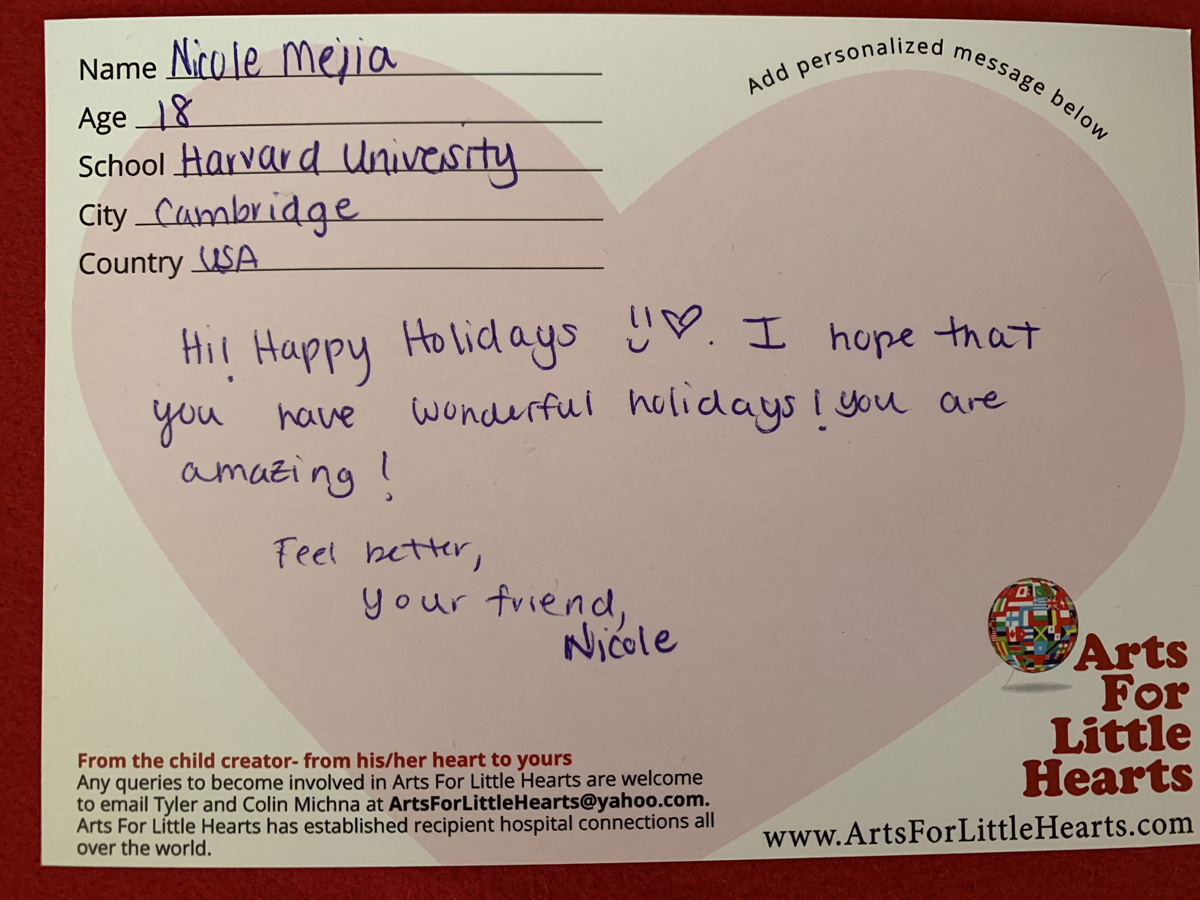 Name Nicole Mejia
Age 18
School Harvard University
City Cambridge
Country USA
Add personalized message below
Hi! Happy Holidays !! ♡. I hope that
you have wonderful holidays! you are
amazing!
Feel better,
your friend,
Nicole
Arts
For
Little
Hearts
From the child creator- from his/her heart to yours
Any queries to become involved in Arts For Little Hearts are welcome
to email Tyler and Colin Michna at ArtsForLittleHearts@yahoo.com.
Arts For Little Hearts has established recipient hospital connections all
over the world.
www.ArtsForLittleHearts.com